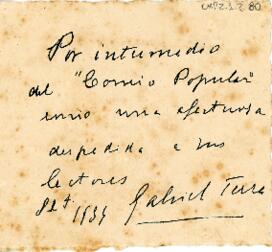 Por intermedio
del "Correo Popular"
envio una afectuosa
despedida a sus
lectores
1939 Gabriel Terra